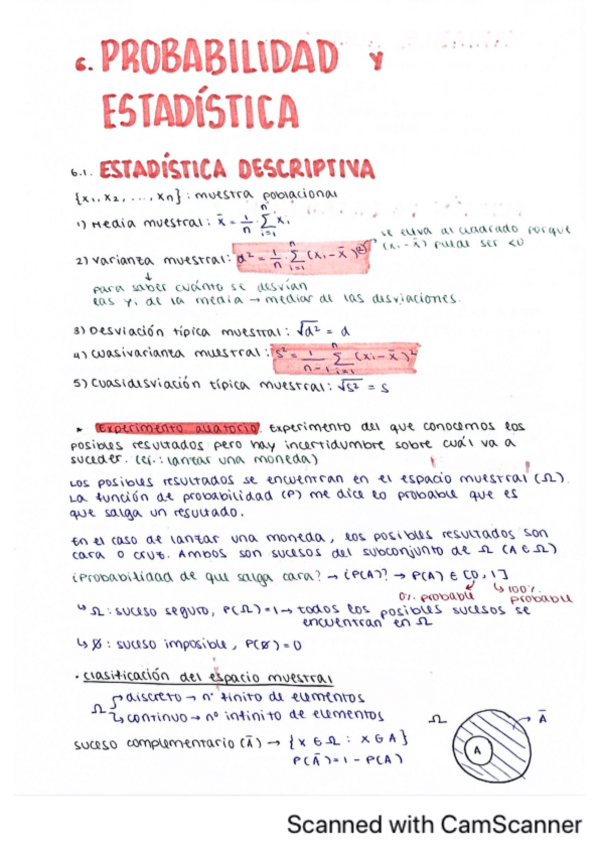 6. PROBABILIDAD y
ESTADÍSTICA
6.1. ESTADÍSTICA DESCRIPTIVA
{x₁, x₂, ..., xn} : muestra poblacional
1) Media muestral : x̄ = 1/n · Σ(i=1, n) xᵢ
se eleva al cuadrado porque
(xᵢ - x̄) puede ser <0
2) Varianza muestral : d² = 1/n · Σ(i=1, n) (xᵢ - x̄)²
↓
para saber cuánto se desvían
las yᵢ de la media → mediar de las desviaciones.
3) Desviación típica muestral : √d² = d
4) Cuasivarianza muestral : s² = 1/(n-1) Σ(i=1, n) (xᵢ - x̄)²
5) Cuasidesviación típica muestral : √s² = s
* Experimento aleatorio. Experimento del que conocemos los
posibles resultados pero hay incertidumbre sobre cuál va a
suceder. (ej.: lanzar una moneda)
Los posibles resultados se encuentran en el espacio muestral (Ω).
La función de probabilidad (P) me dice lo probable que es
que salga un resultado.
En el caso de lanzar una moneda, los posibles resultados son
cara o cruz. Ambos son sucesos del subconjunto de Ω (A ∈ Ω)
¿Probabilidad de que salga cara? → ¿P(A)? → P(A) ∈ [0, 1]
0% probable ↳ 100% probable
↳ Ω : suceso seguro, P(Ω) = 1 → todos los posibles sucesos se
encuentran en Ω
↳ ∅ : suceso imposible, P(∅) = 0
· Clasificación del espacio muestral
Ω → discreto → nº finito de elementos
↳ continuo → nº infinito de elementos
suceso complementario (Ā) → {x ∈ Ω : x ∉ A}
P(Ā) = 1 - P(A)
Ω A Ā
Scanned with CamScanner